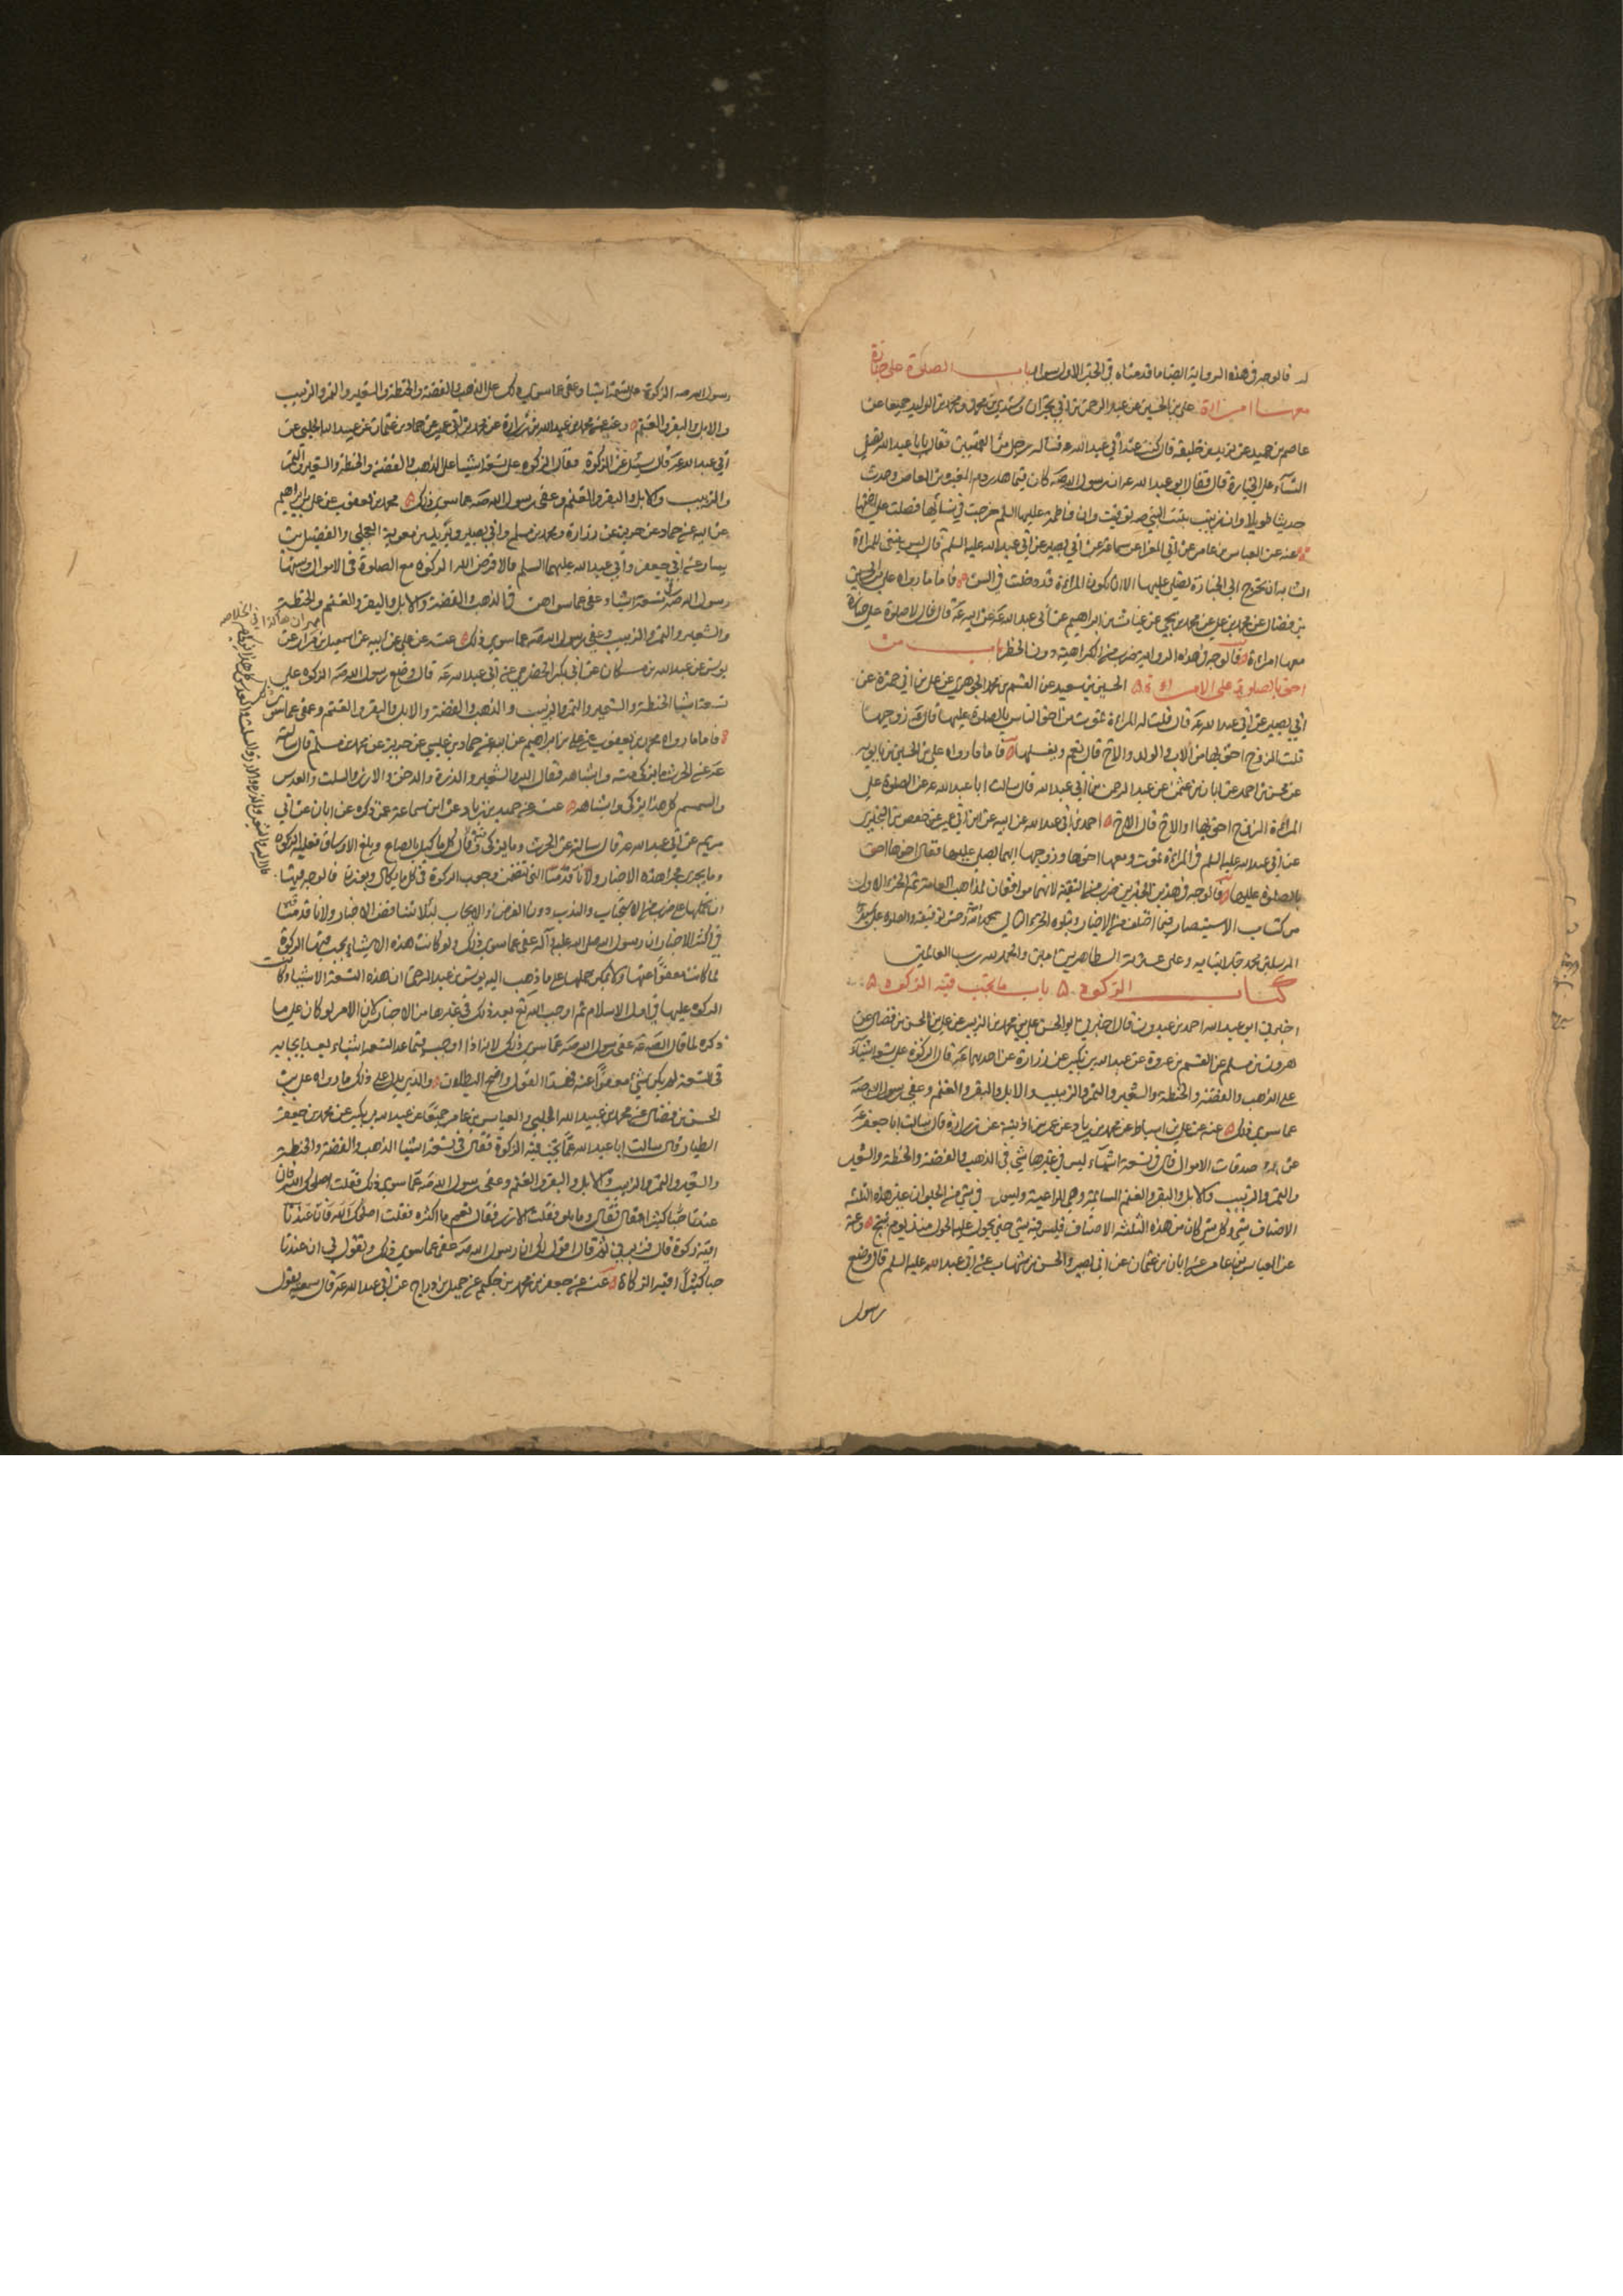 له فالوجه في هذه الرواية ايضا ما قدمناه في الخبر الاول سواء باب الصلوة على جنازة
معها امراة علي بن الحسين عن عبد الرحمن بن ابي نجران وسندي بن محمد ومحمد بن الوليد جميعا عن
عاصم بن حميد عن يزيد بن خليفة قال كنت عند ابي عبد الله ع فساله رجل من القميين فقال يا با عبد الله تصلي
النساء على الجنازة قال فقال ابو عبد الله ع ان رسول الله ص كان فيما هدر دم المغيرة بن العاص وحدث
حديثا طويلا وان زينب بنت النبي ص توفيت وان فاطمة عليها السلم خرجت في نسائها فصلت على اختها
عنه عن العباس بن عامر عن ابي المغرا عن سماعة عن ابي بصير عن ابي عبد الله عليه السلم قال ليس ينبغي للمراة
الشابة ان تخرج الى الجنازة تصلي عليها الا ان تكون امراة قد دخلت في السن فاما ما رواه علي بن الحسين
بن فضال عن محمد بن علي عن محمد بن يحيى عن غياث بن ابراهيم عن ابي عبد الله ع عن ابيه ع قال لا صلوة على جنازة
معها امراة فالوجه في هذه الرواية ضرب من الكراهية دون الحظر باب من
احق بالصلوة على المراة الحسين بن سعيد عن القسم بن محمد الجوهري عن علي بن ابي حمزة عن
ابي بصير عن ابي عبد الله ع قال قلت له المراة تموت من احق الناس بالصلوة عليها قال ع زوجها
قلت الزوج احق بها من الاب والولد والاخ قال نعم ويغسلها فاما ما رواه علي بن الحسين بن بابويه
عن محسن بن احمد عن ابان بن عثمن عن عبد الرحمن بن ابي عبد الله قال سالت ابا عبد الله ع عن الصلوة على
المراة الزوج احق بها او الاخ قال الاخ احمد بن ابي عبد الله عن ابيه عن ابن ابي عمير عن حفص بن البختري
عن ابي عبد الله عليه السلم في المراة تموت ومعها اخوها وزوجها ايهما يصلي عليها فقال اخوها احق
بالصلوة عليها فالوجه في هذين الخبرين ضرب من التقية لانهما موافقان لمذاهب العامة تم الجزء الاول
من كتاب الاستبصار فيما اختلف من الاخبار ويتلوه الجزء الثاني بحمد الله وحسن توفيقه والصلوة على سيد
المرسلين محمد خير انبيائه وعلى عترته الطاهرين امين والحمد لله رب العالمين
كتاب الزكوة باب ما تجب فيه الزكوة
اخبرني ابو عبد الله احمد بن عبدون قال اخبرني ابو الحسن علي بن محمد بن الزبير عن علي بن الحسن بن فضال عن
هرون بن مسلم عن القسم بن عروة عن عبد الله بن بكير عن زرارة عن احدهما ع قال الزكوة على تسعة اشياء
على الذهب والفضة والحنطة والشعير والتمر والزبيب والابل والبقر والغنم وعفى رسول الله ص
عما سوى ذلك عنه عن علي بن اسباط عن محمد بن زياد عن عمر بن اذينة عن زرارة قال سالت ابا جعفر ع
عن صدقات الاموال قال في تسعة اشياء ليس في غيرها شي في الذهب والفضة والحنطة والشعير
والتمر والزبيب والابل والبقر والغنم السائمة وهي الراعية وليس في شي من الحيوان غير هذه الثلثة
الاصناف شي وكل شي كان من هذه الثلثة الاصناف فليس فيه شي حتى يحول عليه الحول منذ يوم ينتج وعنه
عن العباس بن عامر عن ابان بن عثمان عن ابي بصير والحسن بن شهاب عن ابي عبد الله عليه السلم قال وضع
رسول
رسول الله ص الزكوة على تسعة اشياء وعفى عما سوى ذلك على الذهب والفضة والحنطة والشعير والتمر والزبيب
والابل والبقر والغنم وعنه عن محمد بن عبيد الله بن زرارة عن محمد بن ابي عمير عن حماد بن عثمان عن عبيد الله الحلبي عن
ابي عبد الله ع قال سئل عن الزكوة فقال الزكوة على تسعة اشياء على الذهب والفضة والحنطة والشعير والتمر
والزبيب والابل والبقر والغنم وعفى رسول الله ص عما سوى ذلك محمد بن يعقوب عن علي بن ابراهيم
عن ابيه عن حماد عن حريز عن زرارة ومحمد بن مسلم وابي بصير وبريد بن معوية العجلي والفضيل بن
يسار عن ابي جعفر وابي عبد الله عليهما السلم قالا فرض الله الزكوة مع الصلوة في الاموال وسنها
رسول الله ص في تسعة اشياء وعفى عما سواهن في الذهب والفضة والابل والبقر والغنم والحنطة
والشعير والتمر والزبيب وعفى رسول الله ص عما سوى ذلك عنه عن علي عن ابيه عن اسمعيل بن مرار عن
يونس عن عبد الله بن مسكان عن ابي بكر الحضرمي عن ابي عبد الله ع قال وضع رسول الله ص الزكوة على
تسعة اشيا الحنطة والشعير والتمر والزبيب والذهب والفضة والابل والبقر والغنم وعفى عما سوى
فاما ما رواه محمد بن يعقوب عن علي بن ابراهيم عن ابيه عن حماد بن عيسى عن حريز عن محمد بن مسلم قال سالته
ع عن الحرث ما يزكى منه واشباهه فقال البر والشعير والذرة والدخن والارز والسلت والعدس
والسمسم كل هذا يزكى واشباهه عنه عن حميد بن زياد عن ابن سماعة عمن ذكره عن ابان عن ابي
مريم عن ابي عبد الله ع قال سالته عن الحرث وما يزكى منه فقال كل ما كيل بالصاع وبلغ الاوساق فعليه الزكوة
وما يجري مجرا هذه الاخبار ولانا قدمنا التي تتضمن وجوب الزكوة في كل ما يكال ويوزن فالوجه فيها
ان نحملها على ضرب من الاستحباب والندب دون الفرض والايجاب لئلا تتناقض الاخبار ولانا قدمنا
في اكثر الاخبار ان رسول الله صلى الله عليه وآله عفى عما سوى ذلك ولو كانت هذه الاشياء يجب فيها الزكوة
لما كانت معفوا عنها ولا يمكن حملها على ما ذهب اليه يونس بن عبد الرحمن ان هذه التسعة الاشياء كانت
الزكوة عليها في اول الاسلام ثم اوجب الله تع بعد ذلك في غيرها من الاجناس لان الامر لو كان على ما
ذكره لما قال الصادق ع عفى رسول الله ص عما سوى ذلك لانه اذا اوجب فيما عدا التسعة اشياء بعد ايجابه
في التسعة لم يكن شي معفوا عنه فهذا القول واضح البطلان والذي يدل على ذلك ما رواه علي بن
الحسن بن فضال عن محمد بن عبيد الله الحلبي والعباس بن عامر جميعا عن عبد الله بن بكير عن محمد بن جعفر
الطيار قال سالت ابا عبد الله ع عما تجب فيه الزكوة فقال في تسعة اشيا الذهب والفضة والحنطة
والشعير والتمر والزبيب والابل والبقر والغنم وعفى رسول الله ص عما سوى ذلك فقلت اصلحك الله فان
عندنا حبا كثيرا قال فقال وما هو فقلت الارز فقال نعم ما اكثره فقلت اصلحك الله فان عندنا
افيه زكوة قال فزبرني ثم قال اقول لك ان رسول الله ص عفى عما سوى ذلك وتقول لي ان عندنا
حبا كثيرا افيه الزكاة عنه عن جعفر بن محمد بن حكيم عن جميل بن دراج عن ابي عبد الله ع قال سمعته يقول